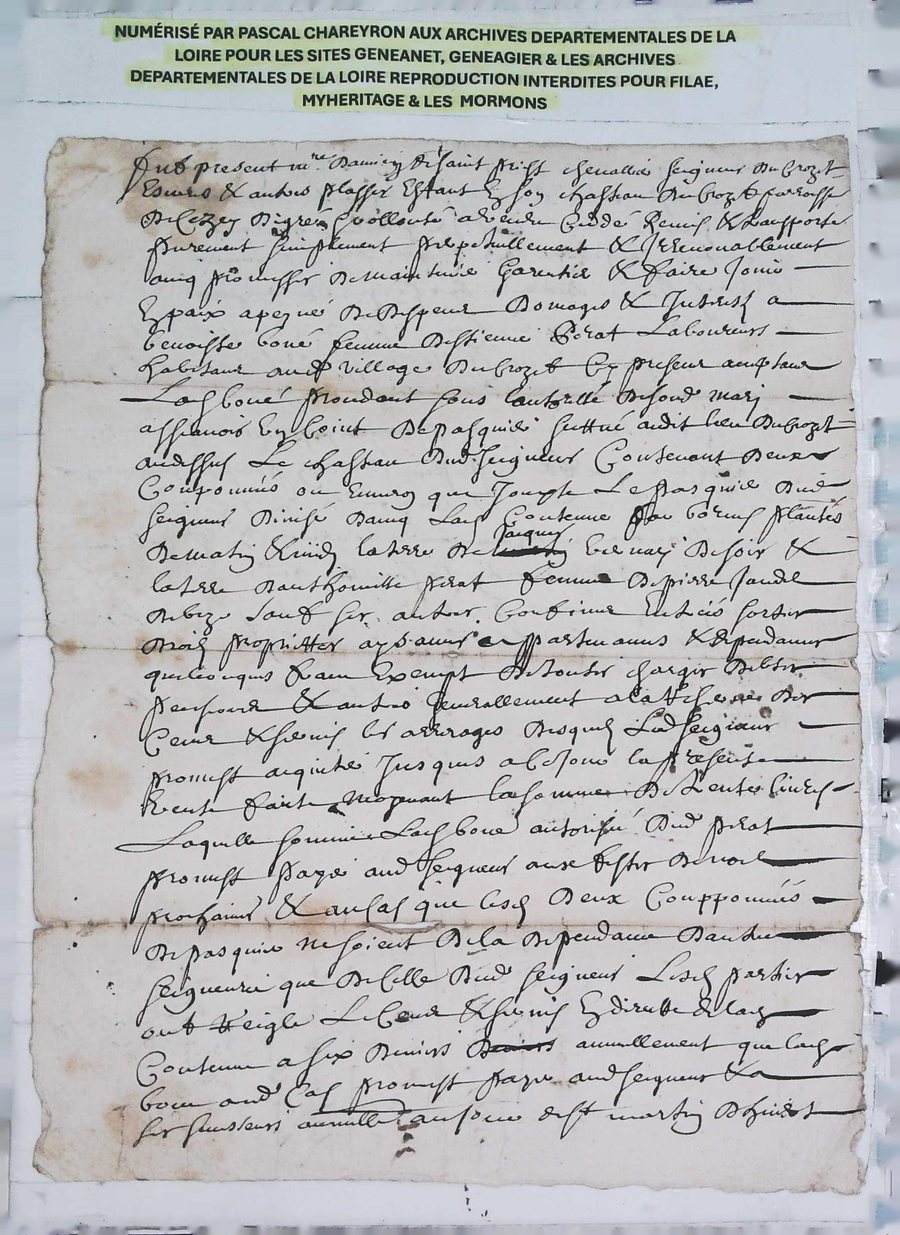 NUMÉRISÉ PAR PASCAL CHAREYRON AUX ARCHIVES DEPARTEMENTALES DE LA
LOIRE POUR LES SITES GENEANET, GENEAGIER & LES ARCHIVES
DEPARTEMENTALES DE LA LOIRE REPRODUCTION INTERDITES POUR FILAE,
MYHERITAGE & LES MORMONS
fut present mre de saint priest chevallier seigneur du crozet
& autres places estant en son chasteau du crozet parroisse
de gré vollonté a vendu ceddé remis & transporte
purement simplement perpetuellement & irrevocablement
avec promesse de maintenir garentir & faire jouir
en paix a peyne de despens domages & interestz a
benoiste boué femme destienne perat laboureur
habitant aud village du crozet en presente
lad boué procedant soubz lautorité de sond mary
assavoir un de pasquier situé audit lieu du crozet
audessus le chasteau dud seigneur contenant deux
que le pasquier dud
seigneur divisé lad contenue par bornes plantés
de matin & midy la terre de jacques de soir &
la terre perat femme de pierre
de bize sauf ses autres confins
droictz proprietes appartenances & dependances
quelconques franc exempt de toutes charges debtes
pensions & autres generallement a la des
cens & servis les arrerages desquelz led seigneur
promest acquitter jusques a ce jour la presente
vente faicte moyenant la somme de trente livres
laquelle somme lad boué autorisée dud perat
promest payer aud seigneur aux festes de noel
prochaines & au cas que lesd deux coupponnées
de pasquier ne soient de la dependance dautre
seigneurie que de celle dud seigneur lesd parties
ont reiglé le cens & servis en directe de lad
contenue a six deniers annuellement que lad
boué aud cas promest payer aud seigneur & a
ses successeurs au jour de st martin dhiver